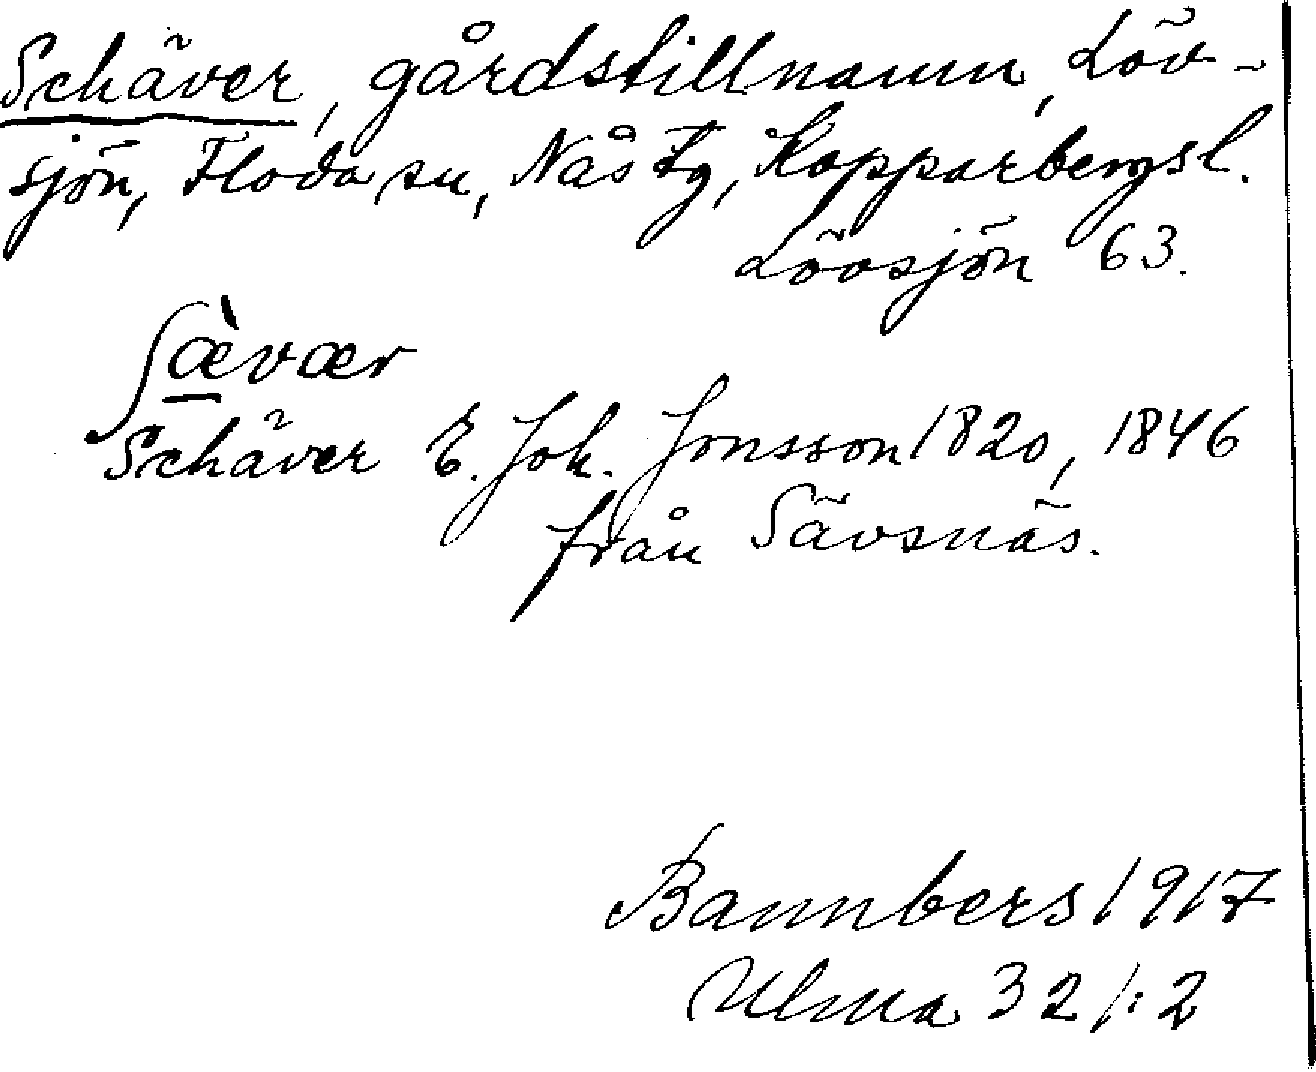 Schäver, gårdstillnamn, Löv-
sjön, Floda sn, Nås tg, Kopparbergs l.
Lövsjön 63.
ʃæ̀vær
Schäver E. Joh. Jonsson 1820, 1846
från Sävsnäs.
Bannbers 1917
Ulma 321:2